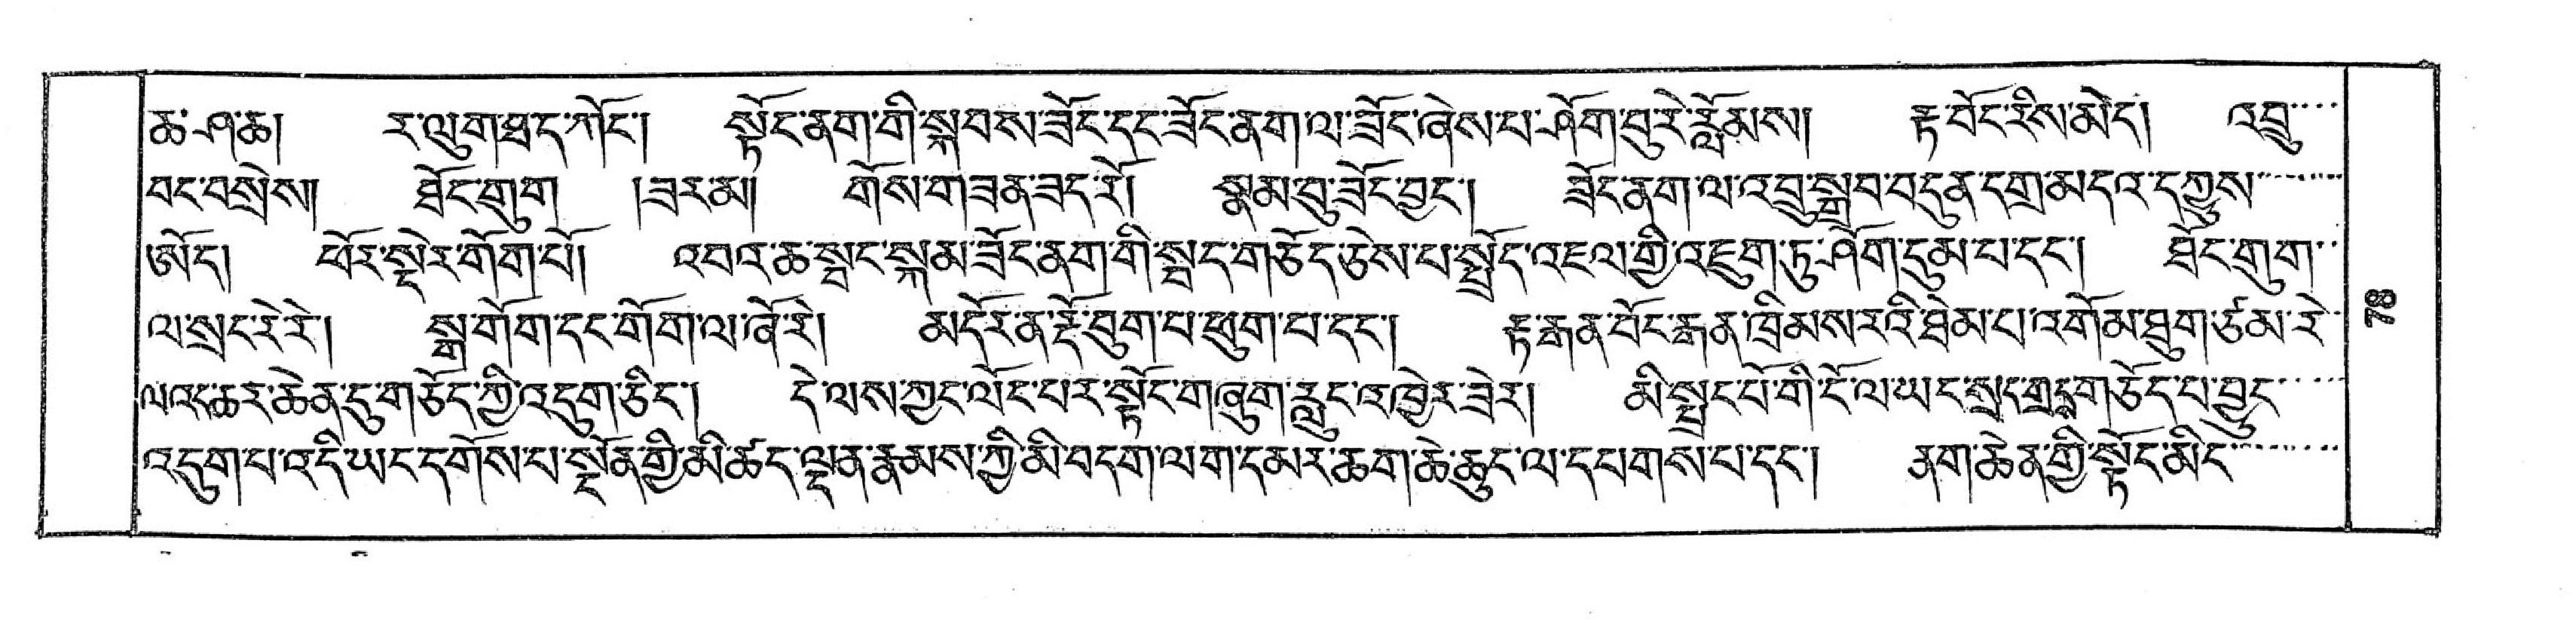 ཆ་ཤ་ཆ། ར་ལུག་ཐྲད་ཀོང་། སྟོང་ནག་གི་སྐབས་ཟོང་དང་ཟོང་ནག་ལ་ཟོང་ཞེས་པ་ཤོག་བུ་རེ་རློམས། རྟ་བོང་རིས་མེད། འབྲུ་་་་
བང་བསྲེས། ཐོང་གུག །ཟར་མ། གོས་གཟན་ཟད་རོ། སྣམ་བུ་ཟོང་བྱང་། ཟོང་ནག་ལ་འབྲུ་སྒྲབ་བདུན་དགྲ་མདའ་དཀྱུས་་་་་་
ཨོད། ཕོར་སྡེར་གོག་པོ། འབའ་ཆ་སྦང་སྐམ་ཟོང་ནག་གི་སྦད་གཅོད་ཅེས་པ་སྤྲོད་འཇལ་གྱི་འཇུག་ཏུ་ཤོག་དུམ་པ་དང་། ཐོང་གུག་་
ལ་སྲང་རེ་རེ། སྒྲ་གོག་དང་གོག་ལ་ཞོ་རེ། མདོར་ན་རྡོ་བུག་པ་ཕུག་པ་དང་། རྟ་རྒན་བོང་རྒན་ཁྲིམས་རའི་ཐེམ་པ་འགོམ་ཐུག་ཙམ་རེ་
ལའང་ཆར་ཆེན་དུ་གཅོད་ཀྱི་འདུག་ཅིང་། དེ་ལས་ཀྱང་ལོང་པར་སྟོང་གཞུག་རླུང་འཁྱེར་ཟེར། མི་སྤྲང་པོ་གི་ངོ་ལ་ཡང་སྲད་གྲྭ་གཅོད་པ་བྱུང་་་་་
འདུག་པ་འདི་ཡང་དགོས་པ་སྔོན་གྱི་མི་ཚད་ལྡན་རྣམས་ཀྱི་མི་བདག་ལག་དམར་ཆག་ཆེ་ཆུང་ལ་དཔགས་པ་དང་། ནག་ཆེན་གྱི་སྟོང་མིང་་་་་་་